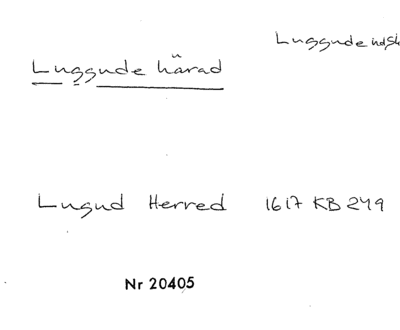 Luggude
Luggude härad
Lugud Herred 1617 KB 249
Nr 20405